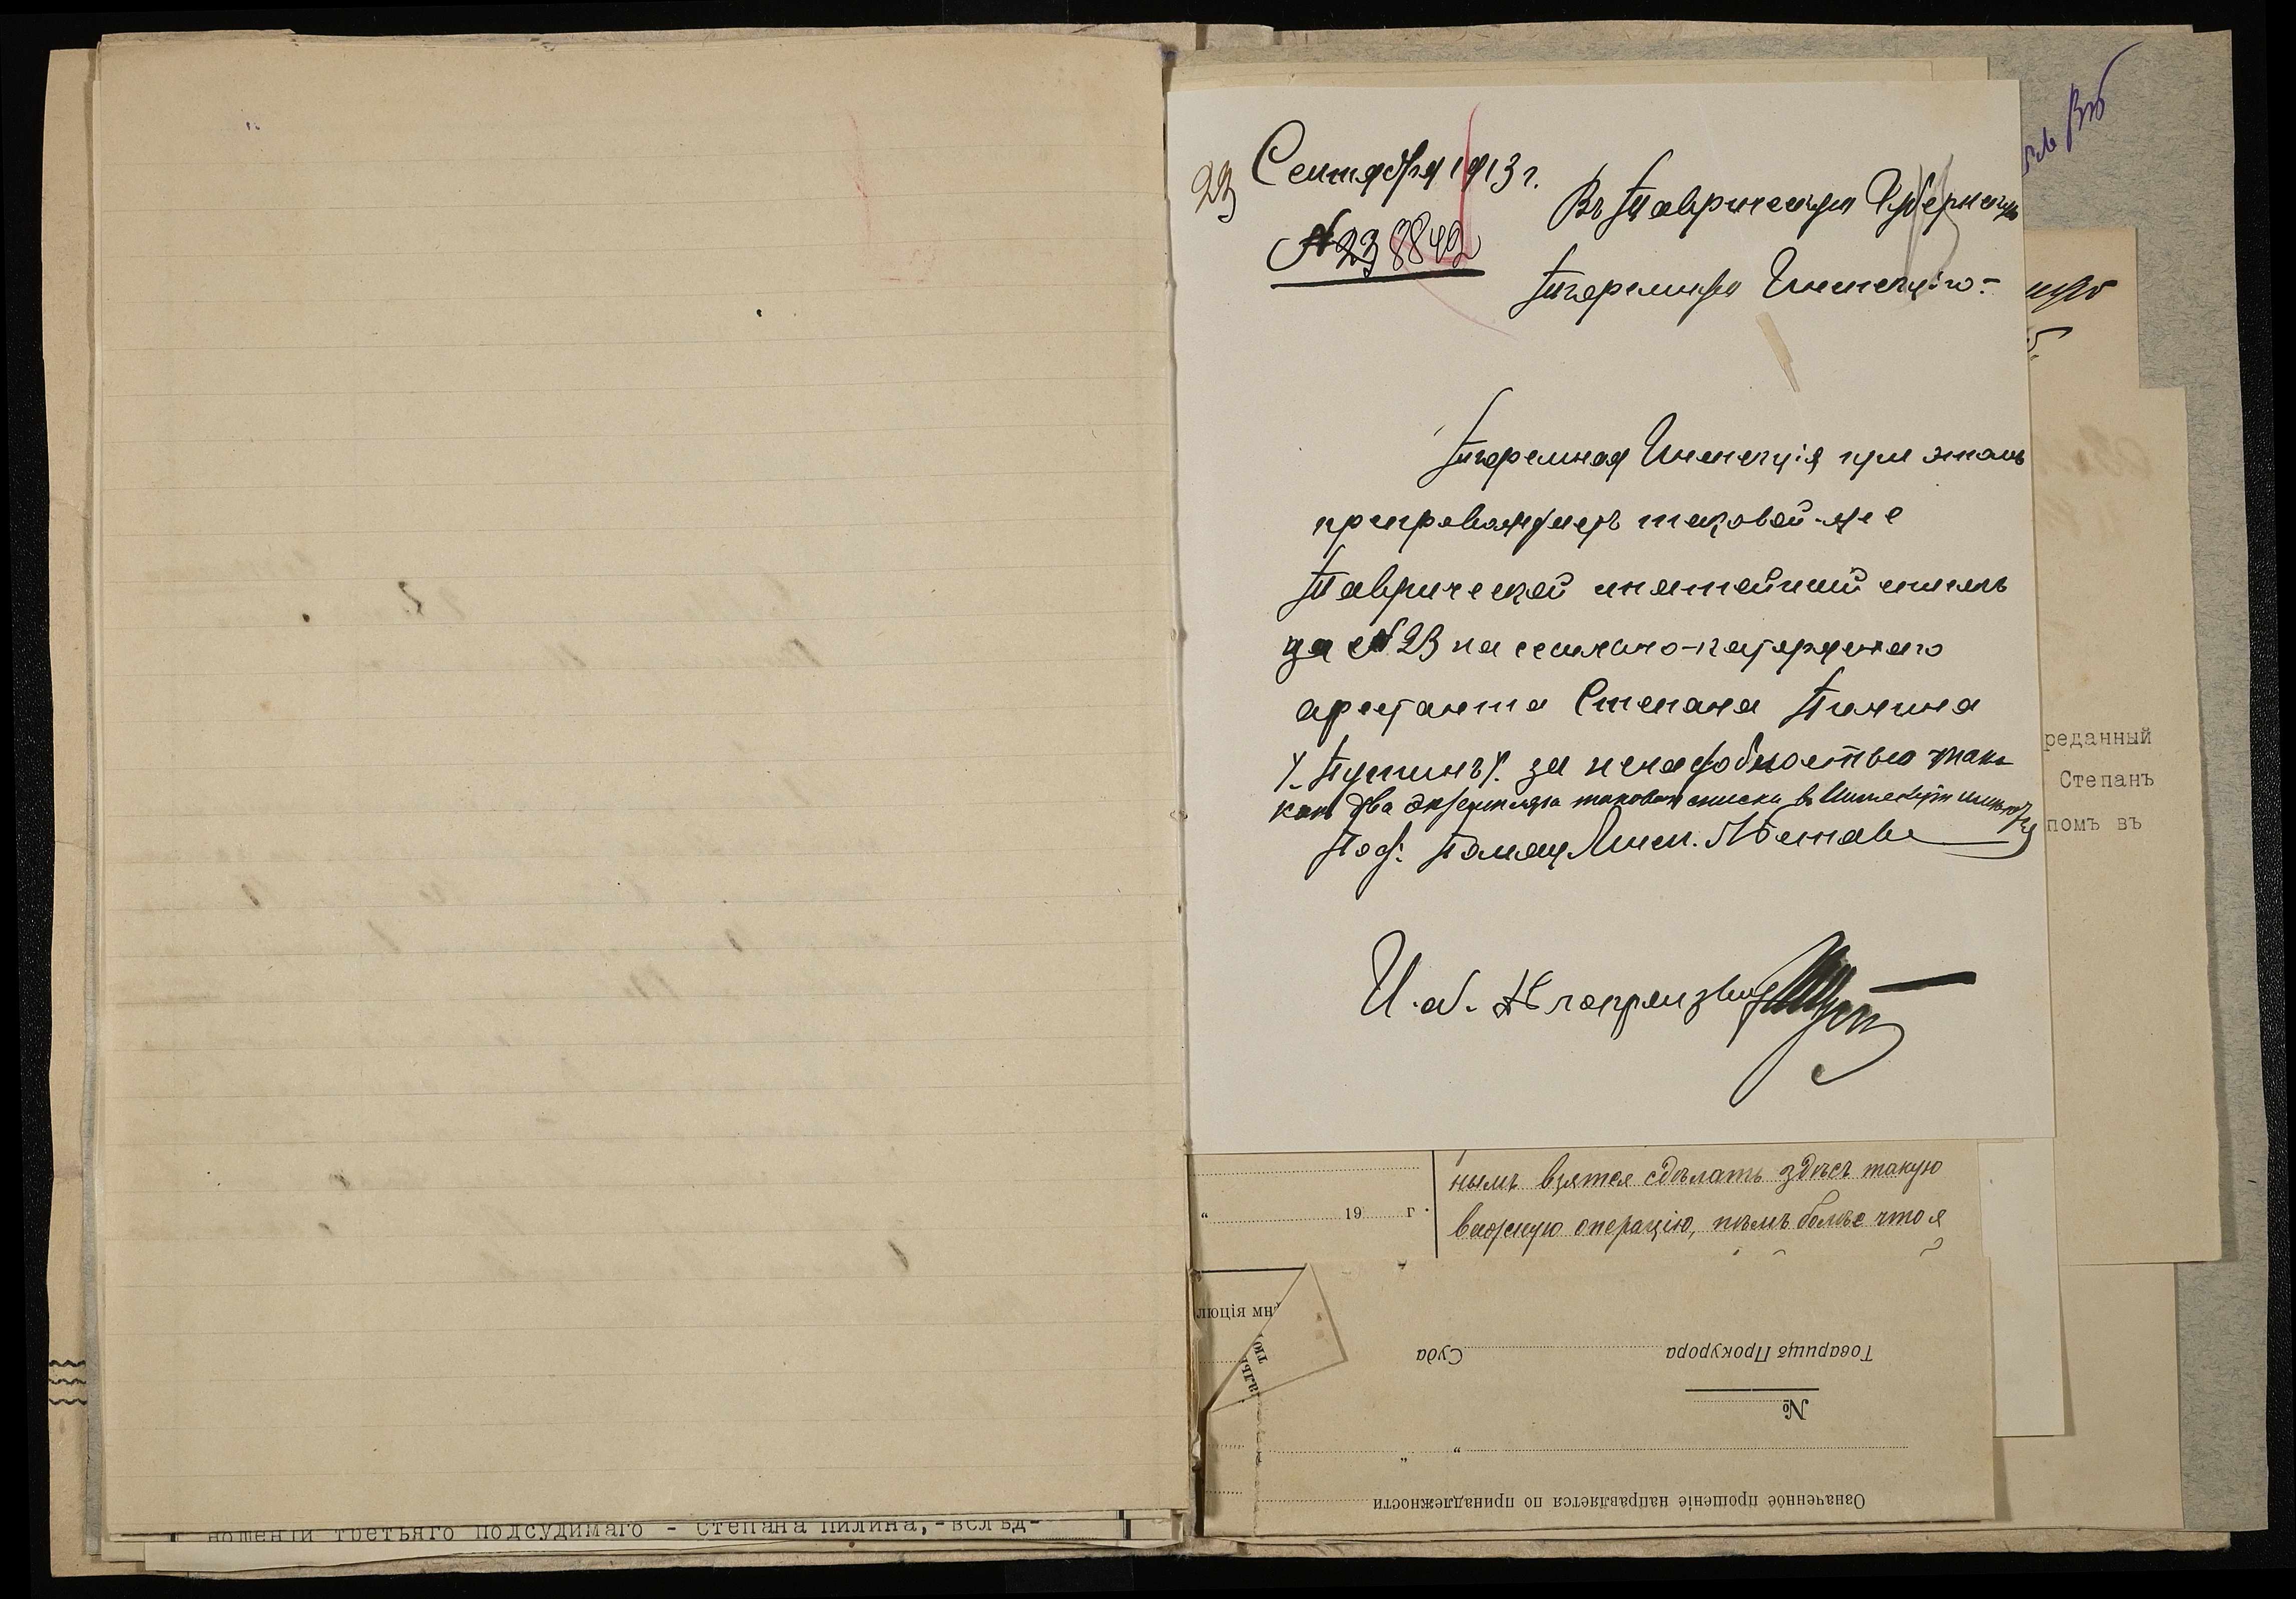 23 Сентября 1913 г.
№ 238842
Въ Таврическую Губернскую
Тюремную Инспекцію.
Тюремная Инспекція при этомъ
препровождаетъ таковой-же
Таврической статейный списокъ
за № 23 на ссыльно-каторжнаго
арестанта Степана Пилина
за ненадобностью такъ
какъ два экземпляра таковыхъ списка въ Инспекціи имѣются
Под: Помощ. Инсп.
И. об. Дѣлопроизвод
нымъ взятся сдѣлать здѣсь такую
важную операцію, тѣмъ болѣе что я
" 19 г.
люціи
Товарища Прокурора Суда
№
" "
Означенное прошеніе направляется по принадлежности
реданный
Степанъ
помъ въ
ношеніи третьяго подсудимаго - Степана Пилина,-вслѣд-